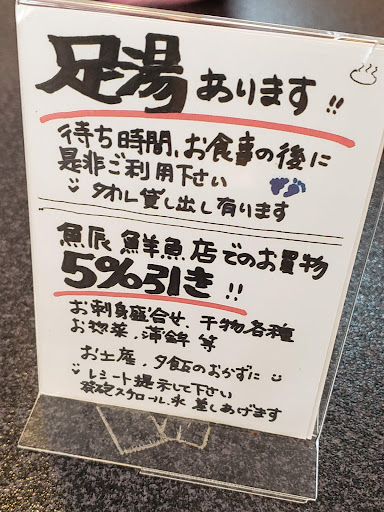 足湯あります!!
待ち時間、お食事の後に
是非ご利用下さい
タオル貸し出し有ります
魚辰 鮮魚店でのお買物
5%引き!!
お刺身盛合せ、干物各種
お惣菜、蒲鉾 等
お土産、夕飯のおかずに
レシート提示して下さい
発砲スチロール、氷 差しあげます